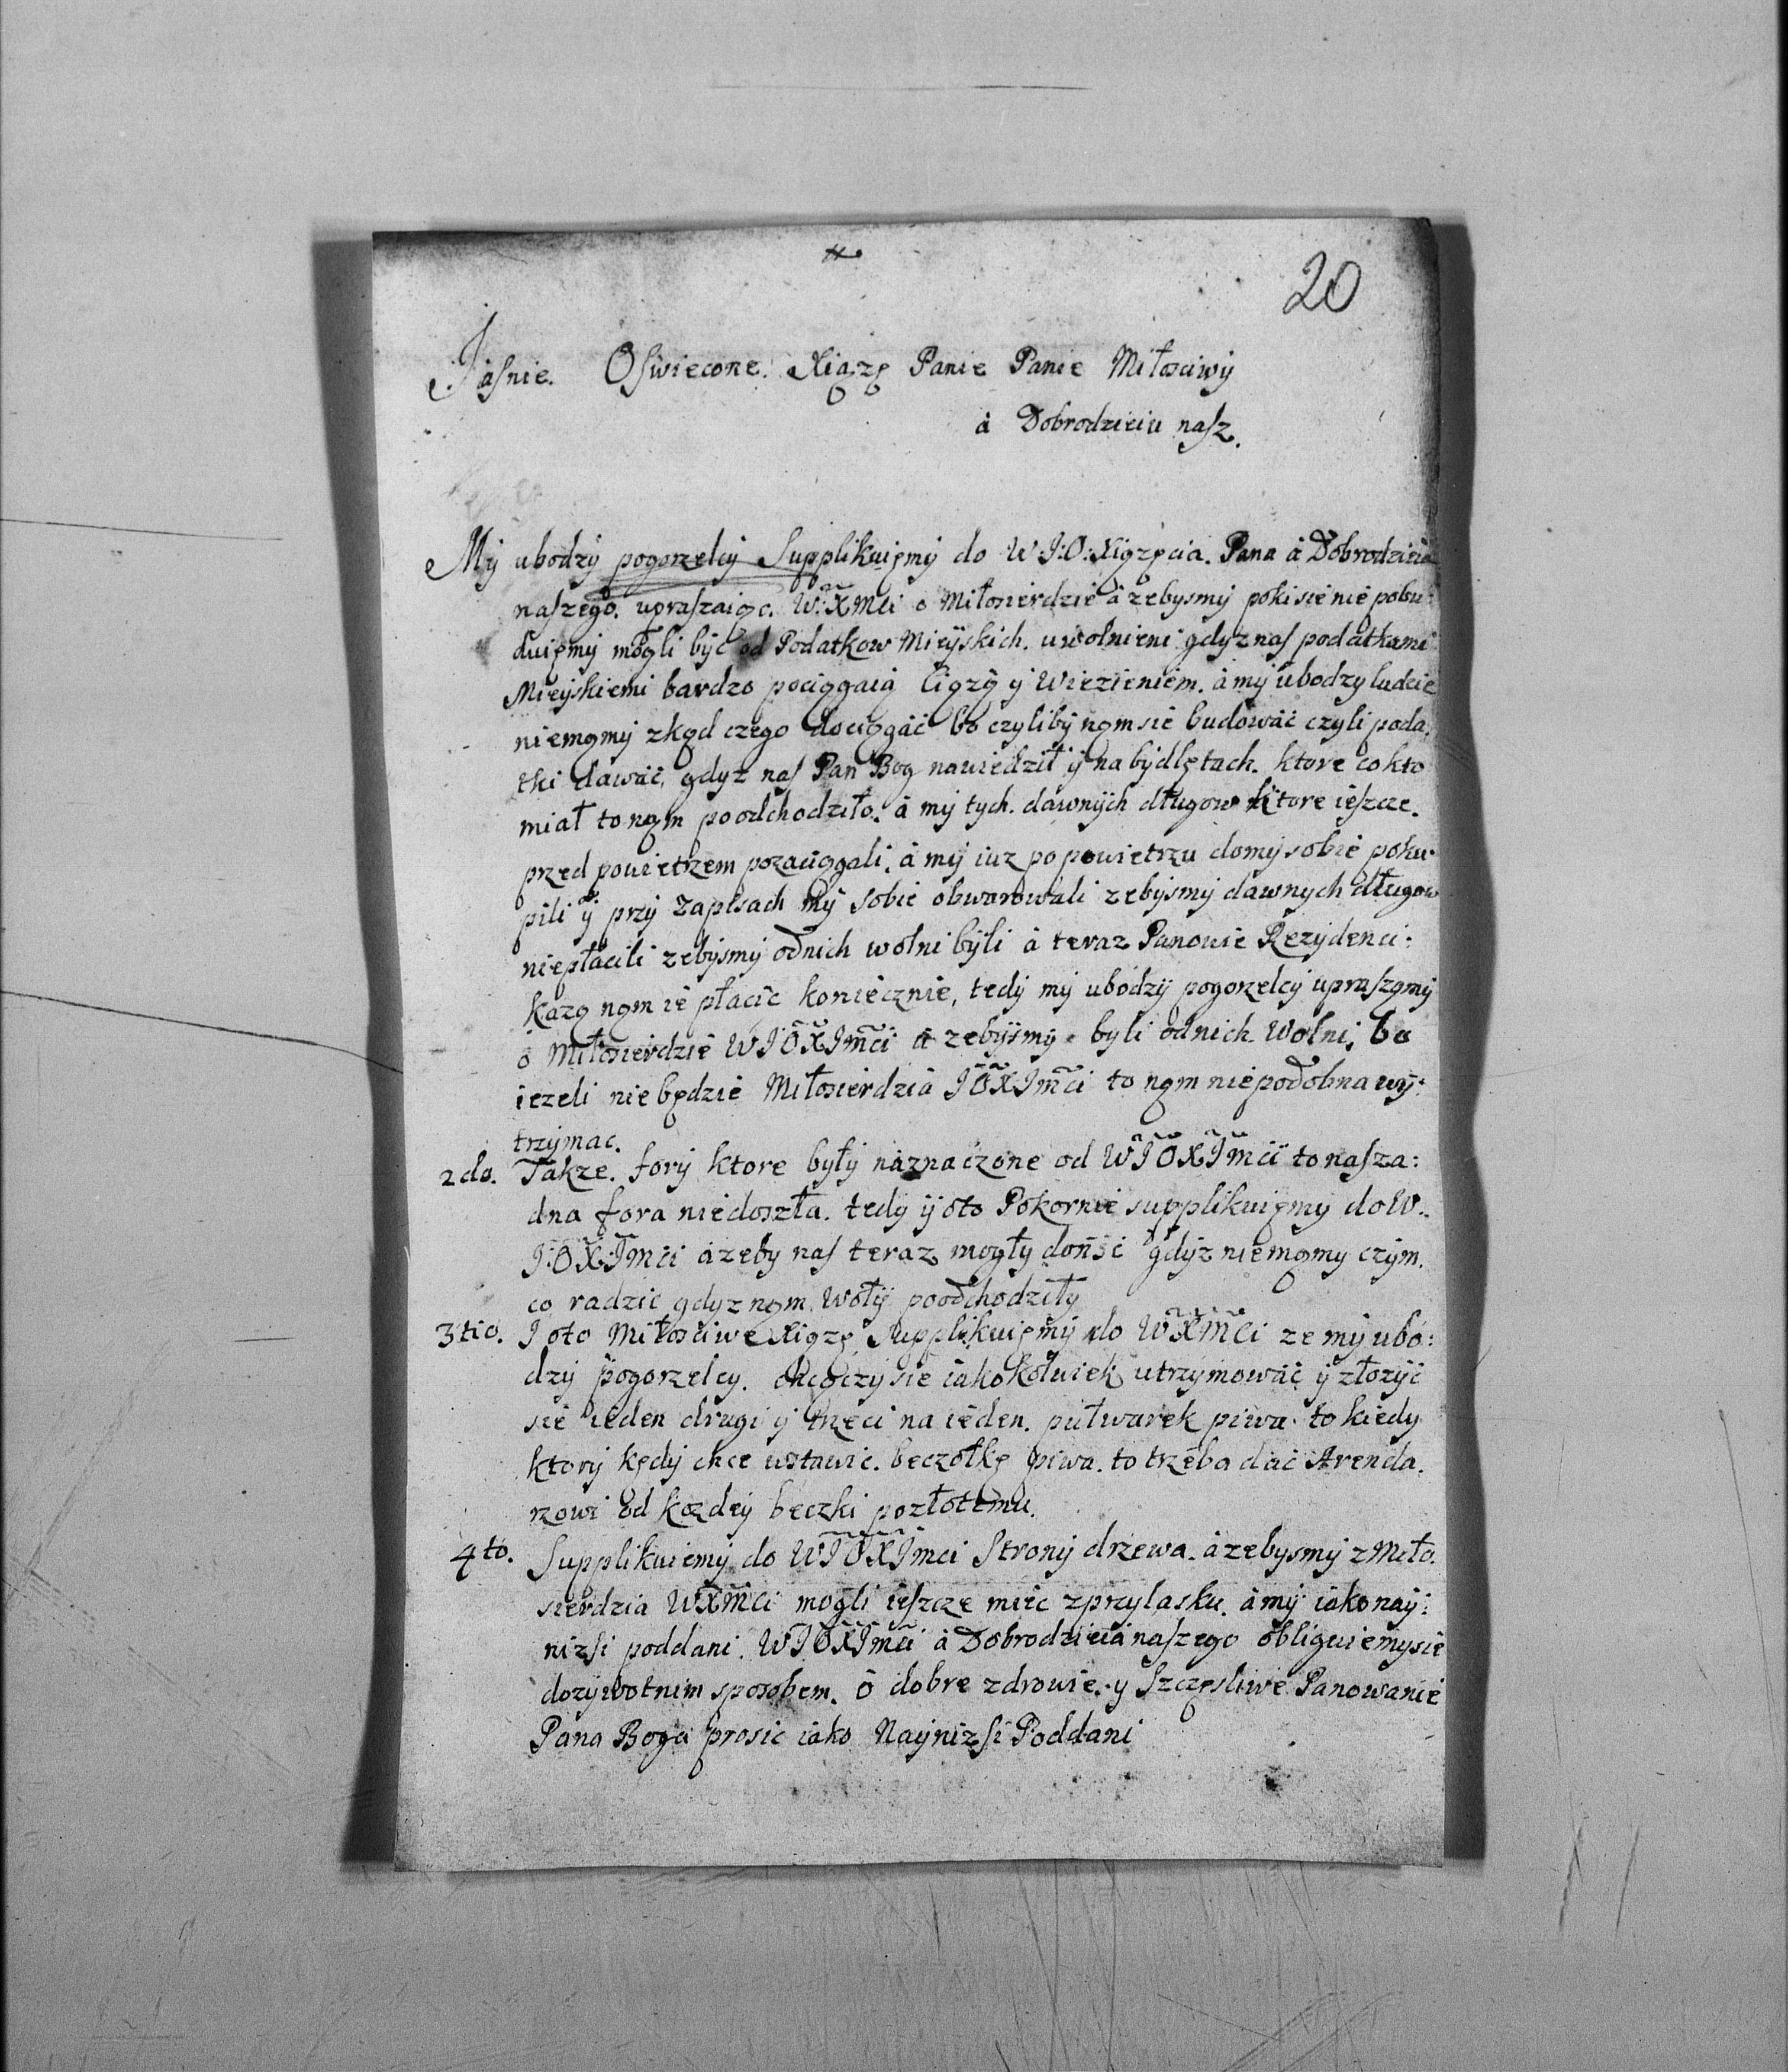 20
Jasnie. Oswiecone. Xiąze Panie Panie Miłosciwy
à Dobrodzieiu nasz.
My ubodzy pogorzelcy Supplikuięmy do W:J:O: Xiązęcia. Pana à Dobrodzieia
naszego. upraszaiąc. W:X Mci o Miłosierdzie àzebysmy poki sie nie pobu:
duięmy mogli być od Podatkow Mieyskich. uwolnieni gdyz nas podatkami
Mieyskiemi bardzo pociągaią ciązą y Wiezieniem. à my ubodzy ludzie
niemąmy zkąd czego dociągać bo czyliby nąm sie budować czyli poda,
tki dawać, gdyz nas Pan Bog nawiedził y na bydlętach. ktore co kto
miał to nąm poodchodziło. à my tych. dawnych długow ktore ieszcze.
przed powietrzem pozaciągali, à my iuz po powietrzu domy sobie poku
pili y przy Zapisach my sobie obwarowali zebysmy dawnych długow
niepłacili zebysmy odnich wolni byli à teraz Panowie Rezydenci:
kazą nąm ie płacic koniecznie, tedy my ubodzy pogorzelcy uprasząmy
o Miłosierdzie WJOXJmci àzebysmy byli odnich Wolni, bo
iezeli niebędzie Miłosierdzia JOXJmci to nąm niepodobna wy:
trzymac.
2do. Takze. fory ktore były naznaczone od WJOXJmci to nas za:
dna fora niedoszła. tedy y oto Pokornie supplikuięmy do W..
J:OX:Jmci azeby nas teraz mogły donść gdyz niemąmy czym.
co radzic gdyz nąm Woły poodchodziły
3tio. J oto Miłosciwe Xiązę Supplikuięmy do WXMci ze my ubo:
dzy pogorzelcy. chcączy sie iakokolwiek utrzymować y złozyć
sie ieden drugi y trzeci na ieden. pułwarek piwa. to kiedy
ktory kędy chce wstawic. beczołkę piwa. to trzeba dać Arenda.
rzowi od kozdey beczki pozłotemu.
4to. Supplikuiemy do WJOXJmci Strony drzewa. àzebysmy z Miło.
sierdzia WXMci mogli ieszcze miec z przylasku. à my iako nay:
nizsi poddani. WJOXJmci à Dobrodzieia naszego obliguiemysie
dozywotnim sposobem. o dobre zdrowie. y Szczęsliwe Panowanie
Pana Boga prosic iako Naynizsi Poddani